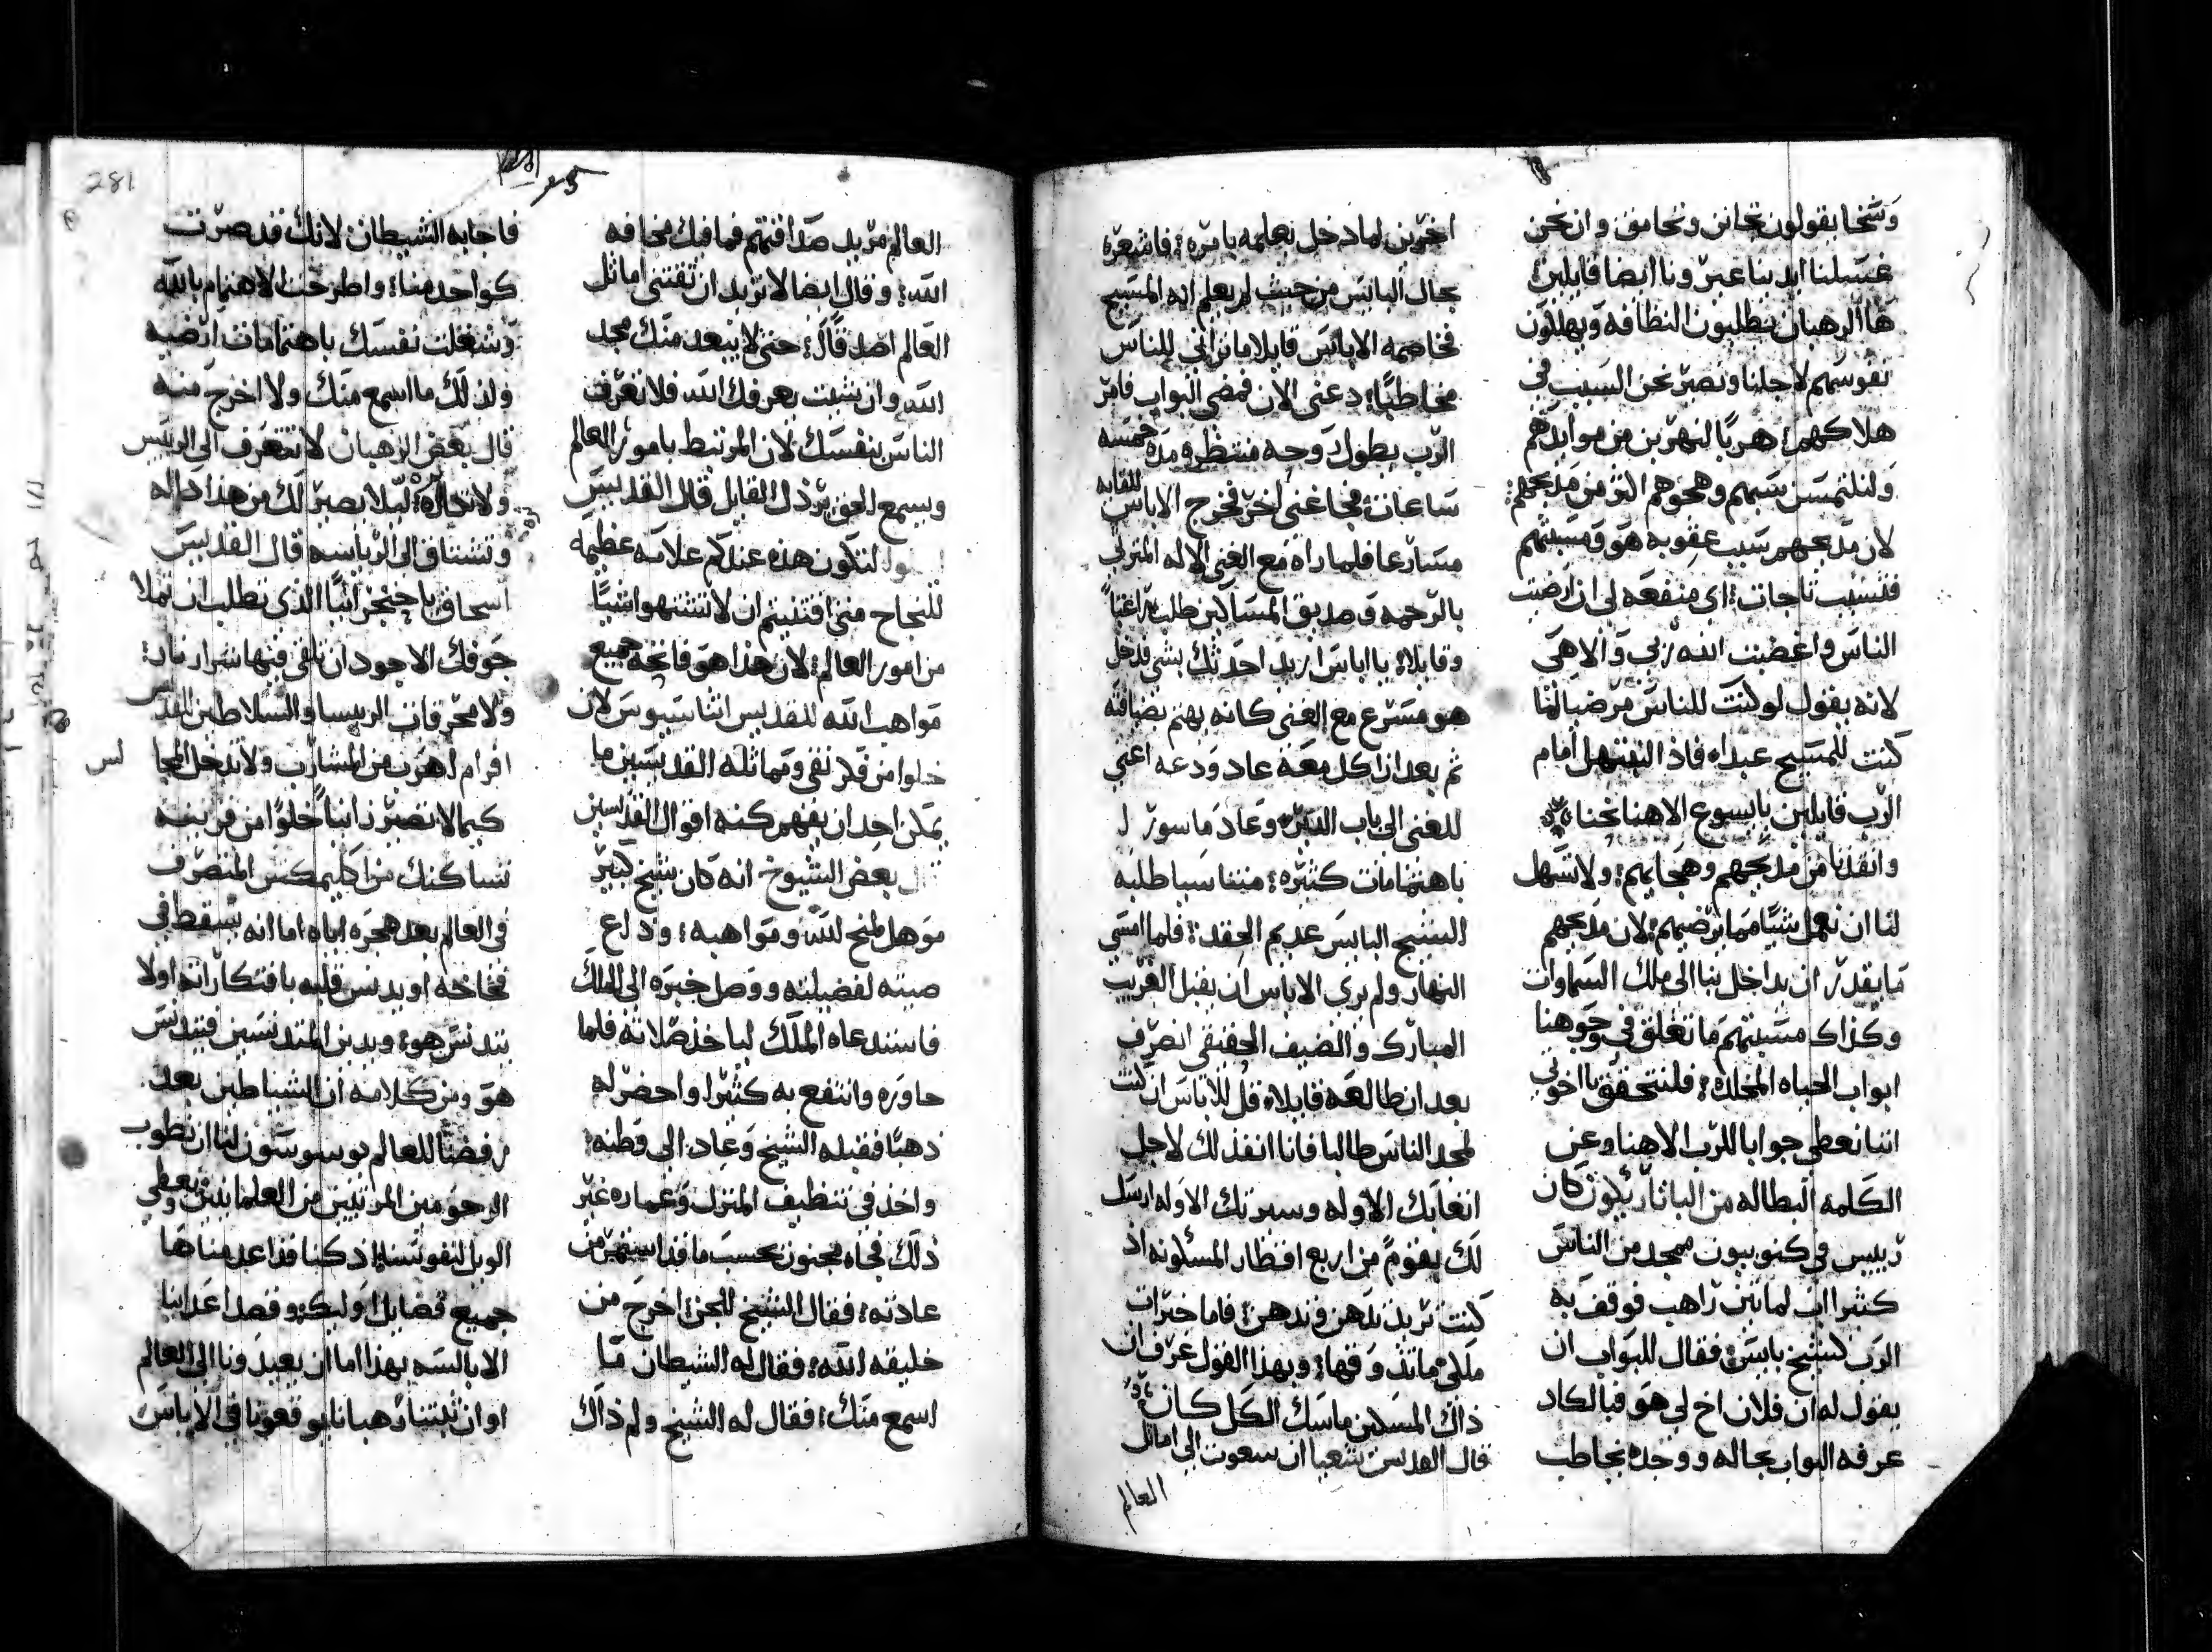 وشخا يقولون نحانن ونحامق وان نحن
غسلنا ايدينا عيرونا ايضا قايلين
هاالرهبان يطلبون النظافه ويهللون
نفوسهم لاجلنا ونصير نحن السبب في
هلاكهم؛ هربا لنهربن من موايدهم
ولنلتمسن سبهم وهجوهم اكثر من مدحهم؛
لان مدحهم سبب عقوبه هو ومسبتهم
اي منفعه لي ان ارضيت
الناس واغضبت الله ربي والاهي
لانه يقول لو كنت للناس مرضيا لما
كنت للمسيح عبدا، فاذا لنبتهل امام
الرب قايلين يا يسوع الاهنا نجنا
وانقذنا من مدحهم وهجايهم؛ ولا تسهل
لنا ان نعمل شيا مما يرضيهم؛ لان مدحهم
ما يقدر ان يداخل بنا الى ملك السماوات
وكذاك مسبتهم ما تغلق في وجوهنا
ابواب الحياه المخلده؛ فلنتحقق يا اخوتي
اننا نعطي جوابا للرب الاهنا وعن
الكلمه البطاله من الباترريكون كان
رييس في كنوبيون ممجد من الناس
كثيرا اب لمايتين راهب فوقف به
الرب كشيخ بايس؛ فقال للبواب ان
يقول له ان فلان اخ لي هو فبالكاد
عرفه البواب بحاله ووجده يخاطب
اخرين لما دخل يعلمه بامره؛ فاشعره
بحال البايس من حيث لم يعلم انه المسيح
فخاصمه الاباس قايلا ما تراني للناس
مخاطبا؛ دعني الان فمضى البواب فامر
الرب بطول روحه منتظره مده خمسه
ساعات؛ فجا غني اخر فخرج الاباس للقايه
مسارعا فلما راه مع الغني الاله المثري
بالرحمه وصديق المساكين طلب راغبا
وقايلا؛ يا اباس اريد احدثك بشي فدخل
هو مسرع مع الغني كانه يهتم بضيافته
ثم بعد ان اكل معه عاد ودعه اعني
للغني الى باب الدير؛ وعاد ماسورا
باهتمامات كثيره؛ متناسيا طلبه
الشيخ البايس عديم الحقد؛ فلما امسي
النهار ولم يري الاباس ان يقبل الغريب
المبارك والضيف الحقيقي انصرف
بعد ان طالعه قايلا، قل للاباس ان كنت
لمجد الناس طالبا فانا انفذ لك لاجل
اتعابك الاوله وسيرتك الاوله ارسل
لك بقوم من اربع اقطار المسكونه اذ
كنت تريد تدهن وتدهن؛ فاما خيرات
ملكي ماتذوقها؛ وبهذا القول عرف ان
ذاك المسكين ماسك الكل كان
قال القديس شعيا ان سعوت الى اماتل
العالم
العالم مريد صداقتهم فما فيك مخافه
الله؛ وقال ايضا لا تريد ان تقتني اماثل
العالم اصدقا لك؛ حتى لا يبعد منك مجد
الله وان شيت يعرفك الله فلا تعرف
الناس بنفسك لان المرتبط بامور العالم
ويسمع الحق يرذل القايل قال القديس
لتكون هذه عندكم علامه عظيمه
للنجاح متى اقتنيتم ان لا تشتهوا شيا
من امور العالم؛ لان هذا هو فاتحه جميع
مواهب الله للقديس اثناسيوس لان
خلوا من فكر نقي ومماثله القديسين ما
يمكن احد ان يفهم كنه اقوال القديسين
بعض الشيوخ انه كان شيخ كبير
موهل لمنح الله ومواهبه؛ وذاع
صيته لفضيلته ووصل خبره الى الملك
فاستدعاه الملك لياخذ صلاته فلما
حاوره وانتفع به كثيرا واحضر له
ذهبا فقبله الشيخ وعاد الى وطنه؛
واخذ في تنظيف المنزل وعماره غير
ذلك فجاه مجنون بحسب ما قد استمر من
عادته؛ فقال الشيخ للجن؛ اخرج من
خليقه الله؛ فقال له الشيطان ما
اسمع منك؛ فقال له الشيخ ولم ذاك
281
فاجابه الشيطان؛ لانك قد صرت
كواحد منا؛ واطرحت الاهتمام بالله
وشغلت نفسك باهتمامات ارضيه
ولذلك ما اسمع منك ولا اخرج منه
قال بعض الرهبان لا تتعرف الى الرييس
ولا تحاره؛ ليلا يصير لك من هذا داله
وتشتاق الى الرياسه قال القديس
اسحاق يا حنجرانيا الذي تطلب ان تملا
جوفك الاجود ان تلقي فيها شرار نار؛
ولا محرقات الرييسا والسلاطين القديس
افرام اهرب من المشارب ولا تدخل الحجا
كيما لا تصير زانيا خلوا من قرينه
تساكنك من اكليمكس المتصرف
في العالم بعد هجره اياه؛ اما انه يسقط في
فخاخه او يدنس قلبه بافتكاراته او لا
يتدنس هو؛ ويدين المتدنسين فيتدنس
هو ومن كلامه ان الشياطين بعد
رفضنا للعالم يوسوسون لنا ان نطوب
الرحومين المرثيين من العلمانيين ونعطي
الويل لنفوسنا؛ اذ كنا قد اعدمناها
جميع فضايل اوليك؛ وقصد اعداينا
الابالسه بهذا اما ان يعيدونا الى العالم
او ان ثبتنا رهبانا يوقعونا في الاياس